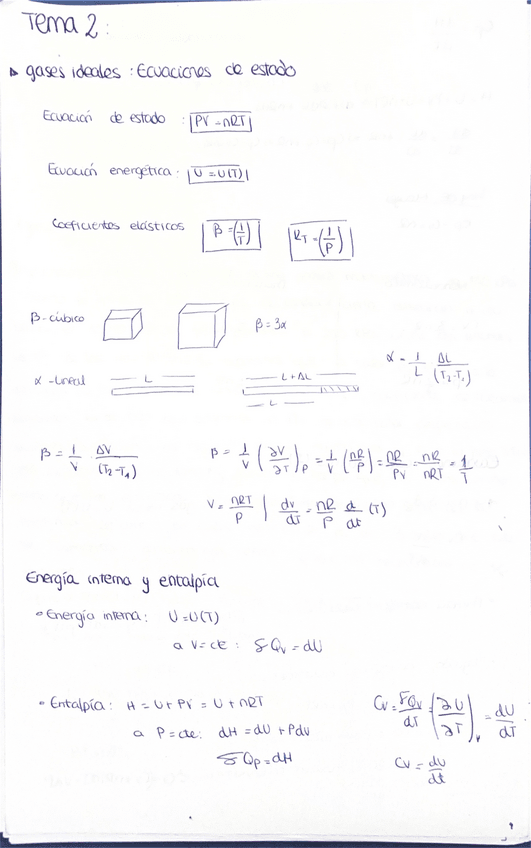 Tema 2:
▸ gases ideales : Ecuaciones de estado
Ecuación de estado : PV = nRT
Ecuación energética : U = U(T)
Coeficientes elásticos β = (1/T) K_T = (1/P)
β - cúbico β = 3α
α - lineal L L + ΔL α = 1/L ΔL/(T₂-T₁)
L
β = 1/V ΔV/(T₂-T₁) β = 1/V (∂V/∂T)_P = 1/V (nR/P) = nR/PV = nR/nRT = 1/T
V = nRT/P | dv/dT = nR/P d/dt (T)
Energía interna y entalpía
• Energía interna : U = U(T)
a V = cte : δQ_V = dU
• Entalpía : H = U + PV = U + nRT Cv = δQ_V/dT = (∂U/∂T)_V = dU/dT
a P = cte : dH = dU + Pdv
δQp = dH Cv = dU/dt